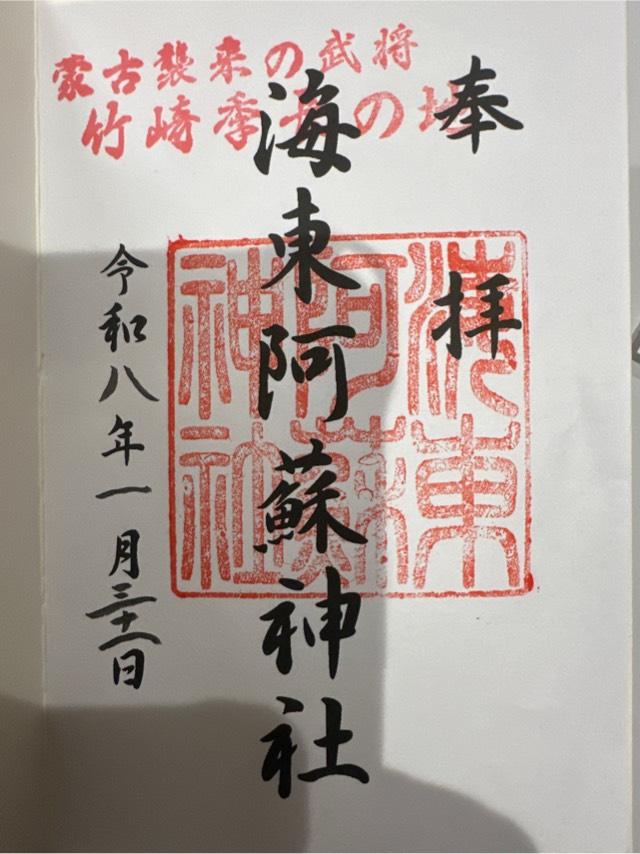 蒙古襲来の武将
竹崎季長の地
奉拝
海東阿蘇神社
令和八年一月三十一日
海東
阿蘇
神社